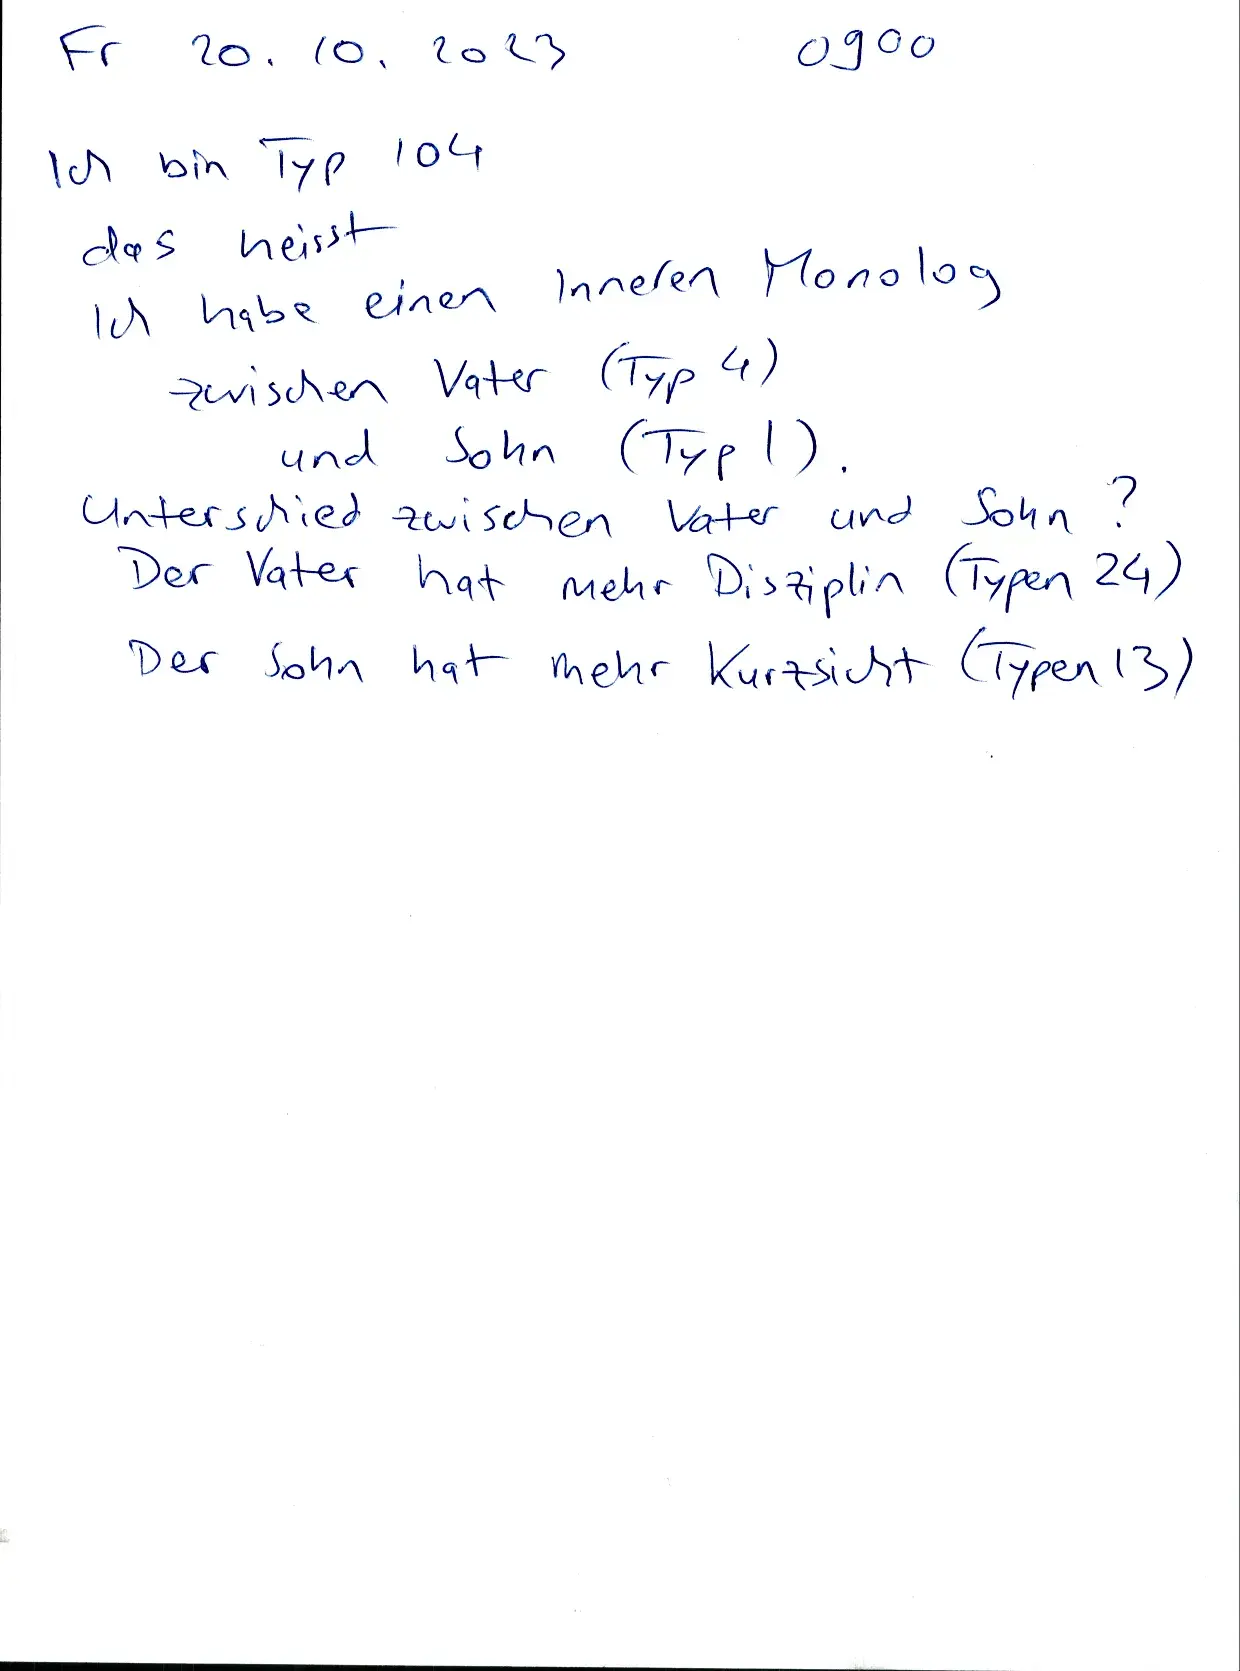 Fr 20.10.2023 0900
Ich bin Typ 104
das heisst
Ich habe einen Inneren Monolog
zwischen Vater (Typ 4)
und Sohn (Typ 1).
Unterschied zwischen Vater und Sohn?
Der Vater hat mehr Disziplin (Typen 24)
Der Sohn hat mehr Kurzsicht (Typen 13)